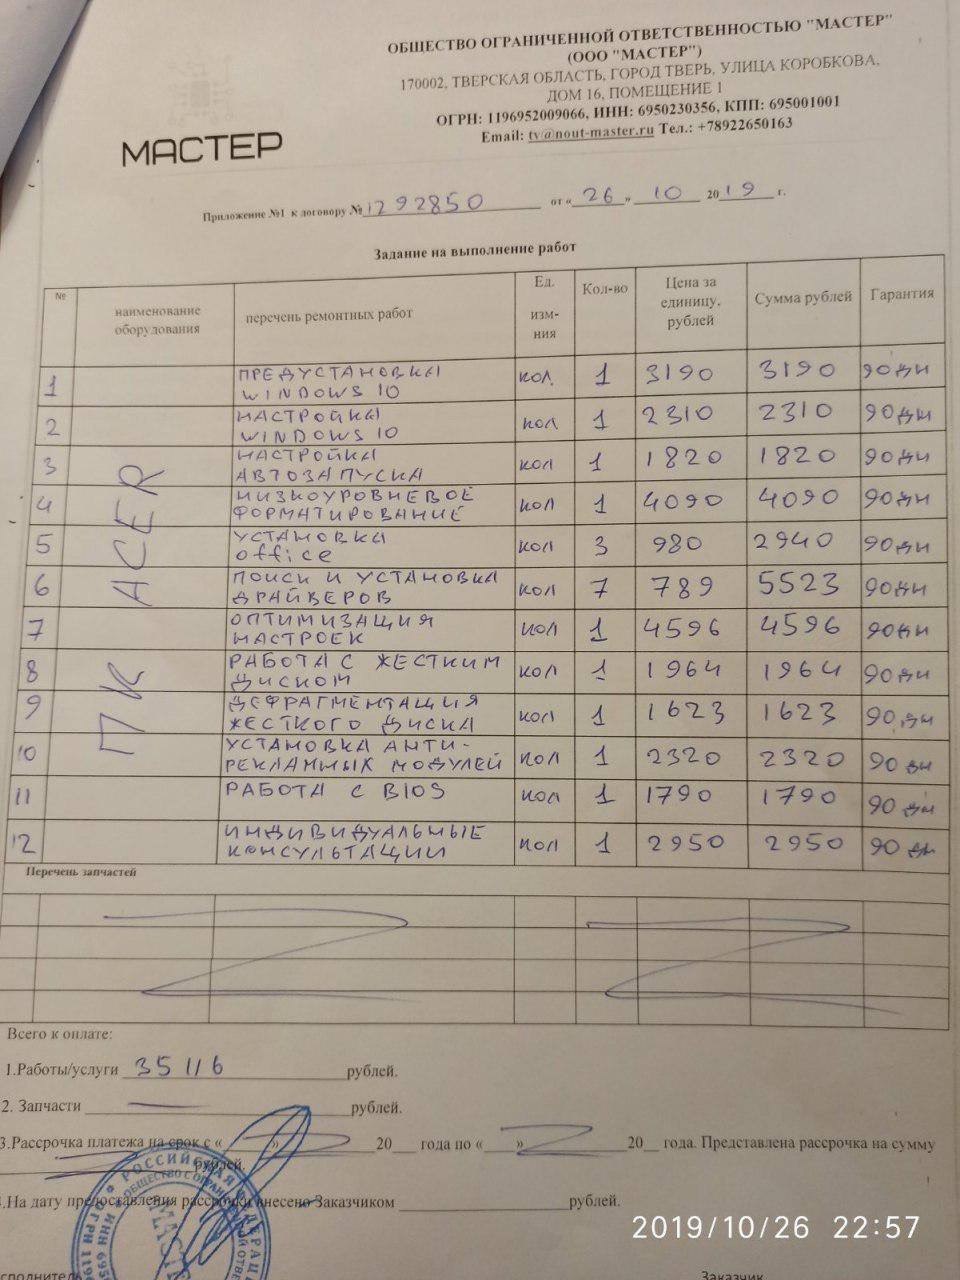 ОБЩЕСТВО ОГРАНИЧЕННОЙ ОТВЕТСТВЕННОСТЬЮ "МАСТЕР"
(ООО "МАСТЕР")
170002, ТВЕРСКАЯ ОБЛАСТЬ, ГОРОД ТВЕРЬ, УЛИЦА КОРОБКОВА,
ДОМ 16, ПОМЕЩЕНИЕ 1
ОГРН: 1196952009066, ИНН: 6950230356, КПП: 695001001
Email: tv@nout-master.ru Тел.: +78922650163
МАСТЕР
Приложение №1 к договору № 1292850 от «26» 10 2019 г.
Задание на выполнение работ
№ наименование оборудования перечень ремонтных работ Ед. изм-ния Кол-во Цена за единицу. рублей Сумма рублей Гарантия
ПК ACER
1 ПРЕДУСТАНОВКА WINDOWS 10 кол 1 3190 3190 90 дн
2 НАСТРОЙКА WINDOWS 10 кол 1 2310 2310 90 дн
3 НАСТРОЙКА АВТОЗАПУСКА кол 1 1820 1820 90 дн
4 НИЗКОУРОВНЕВОЕ ФОРМАТИРОВАНИЕ кол 1 4090 4090 90 дн
5 УСТАНОВКА office кол 3 980 2940 90 дн
6 ПОИСК И УСТАНОВКА ДРАЙВЕРОВ кол 7 789 5523 90 дн
7 ОПТИМИЗАЦИЯ НАСТРОЕК кол 1 4596 4596 90 дн
8 РАБОТА С ЖЕСТКИМ ДИСКОМ кол 1 1964 1964 90 дн
9 ДЕФРАГМЕНТАЦИЯ ЖЕСТКОГО ДИСКА кол 1 1623 1623 90 дн
10 УСТАНОВКА АНТИ-РЕКЛАМНЫХ МОДУЛЕЙ кол 1 2320 2320 90 дн
11 РАБОТА С BIOS кол 1 1790 1790 90 дн
12 ИНДИВИДУАЛЬНЫЕ КОНСУЛЬТАЦИИ кол 1 2950 2950 90 дн
Перечень запчастей
Всего к оплате:
1.Работы/услуги 35116 рублей.
2. Запчасти рублей.
3.Рассрочка платежа на срок с « » 20 года по « » 20 года. Представлена рассрочка на сумму
рублей.
.На дату предоставления рассрочки внесено Заказчиком рублей.
2019/10/26 22:57
Заказчик